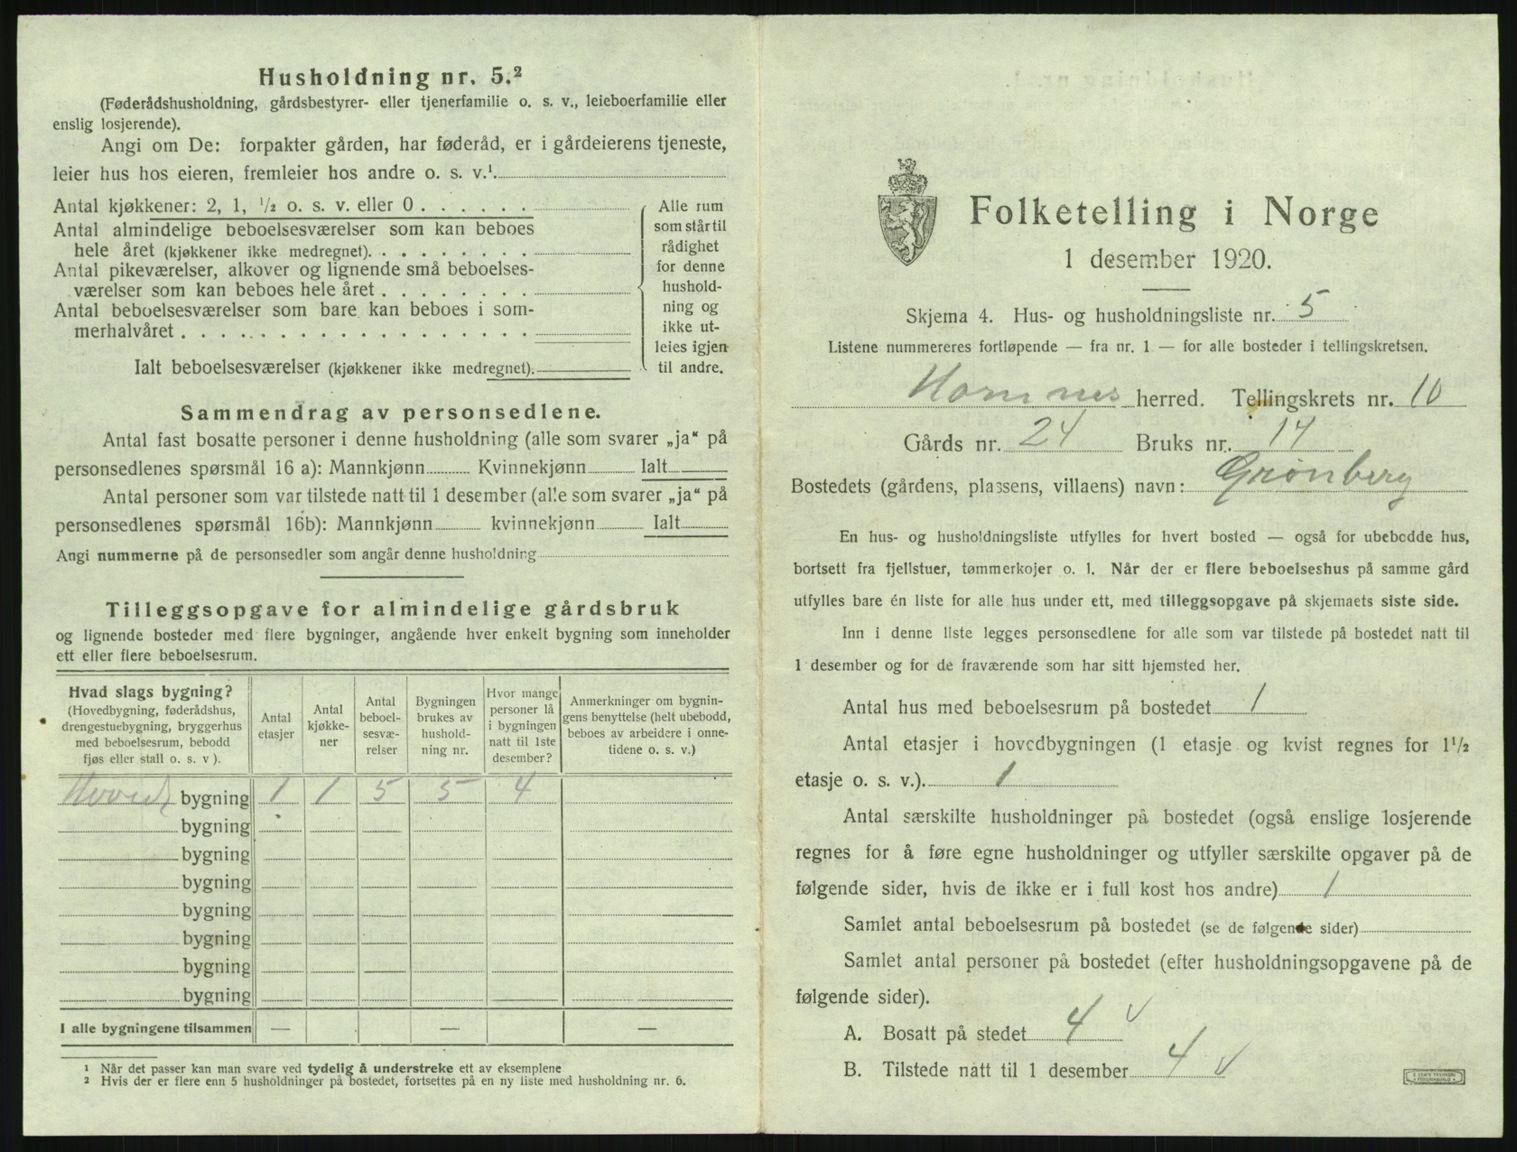 Husholdning nr. 5.²
(Føderådshusholdning, gårdsbestyrer- eller tjenerfamilie o. s. v., leieboerfamilie eller
enslig losjerende).
Angi om De: forpakter gården, har føderåd, er i gårdeierens tjeneste,
leier hus hos eieren, fremleier hos andre o. s. v.¹
Antal kjøkkener: 2, 1, ½ o. s. v. eller 0 . . . . . .
Antal almindelige beboelsesværelser som kan beboes
hele året (kjøkkener ikke medregnet). . . . . . . .
Antal pikeværelser, alkover og lignende små beboelses-
værelser som kan beboes hele året . . . . . . . .
Antal beboelsesværelser som bare kan beboes i som-
merhalvåret . . . . . . . . . . . . . . . . .
Ialt beboelsesværelser (kjøkkener ikke medregnet).
Alle rum
som står til
rådighet
for denne
hushold-
ning og
ikke ut-
leies igjen
til andre.
Sammendrag av personsedlene.
Antal fast bosatte personer i denne husholdning (alle som svarer „ja“ på
personsedlenes spørsmål 16 a): Mannkjønn Kvinnekjønn Ialt
Antal personer som var tilstede natt til 1 desember (alle som svarer „ja“ på
personsedlenes spørsmål 16b): Mannkjønn kvinnekjønn Ialt
Angi nummerne på de personsedler som angår denne husholdning
Tilleggsopgave for almindelige gårdsbruk
og lignende bosteder med flere bygninger, angående hver enkelt bygning som inneholder
ett eller flere beboelsesrum.
Hvad slags bygning?
(Hovedbygning, føderådshus,
drengestuebygning, bryggerhus
med beboelsesrum, bebodd
fjøs eller stall o. s. v ).
Antal
etasjer
Antal
kjøkke-
ner
Antal
beboel-
sesvæ-
relser
Bygningen
brukes av
hushold-
ning nr.
Hvor mange
personer lå
i bygningen
natt til 1ste
desember?
Anmerkninger om bygnin-
gens benyttelse (helt ubebodd,
beboes av arbeidere i onne-
tidene o. s. v.)
Hoved bygning 1 1 5 5 4
bygning
bygning
bygning
bygning
bygning
bygning
bygning
I alle bygningene tilsammen — — —
¹ Når det passer kan man svare ved tydelig å understreke ett av eksemplene
² Hvis der er flere enn 5 husholdninger på bostedet, fortsettes på en ny liste med husholdning nr. 6.
Folketelling i Norge
1 desember 1920.
Skjema 4. Hus- og husholdningsliste nr. 5
Listene nummereres fortløpende — fra nr. 1 — for alle bosteder i tellingskretsen.
herred. Tellingskrets nr. 10
Gårds nr. 24 Bruks nr. 14
Bostedets (gårdens, plassens, villaens) navn: Grønberg
En hus- og husholdningsliste utfylles for hvert bosted — også for ubebodde hus,
bortsett fra fjellstuer, tømmerkojer o. l. Når der er flere beboelseshus på samme gård
utfylles bare én liste for alle hus under ett, med tilleggsopgave på skjemaets siste side.
Inn i denne liste legges personsedlene for alle som var tilstede på bostedet natt til
1 desember og for de fraværende som har sitt hjemsted her.
Antal hus med beboelsesrum på bostedet 1
Antal etasjer i hovedbygningen (1 etasje og kvist regnes for 1½
etasje o. s. v.). 1
Antal særskilte husholdninger på bostedet (også enslige losjerende
regnes for å føre egne husholdninger og utfyller særskilte opgaver på de
følgende sider, hvis de ikke er i full kost hos andre) 1
Samlet antal beboelsesrum på bostedet (se de følgende sider)
Samlet antal personer på bostedet (efter husholdningsopgavene på de
følgende sider).
A. Bosatt på stedet 4 v
B. Tilstede natt til 1 desember 4 v